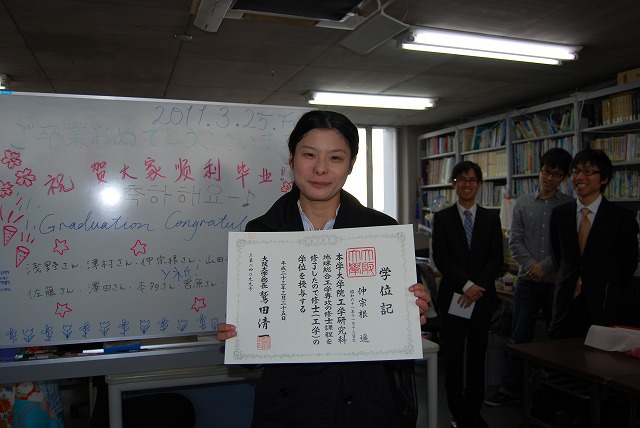 2011.3.25.
ご卒業おめでとう
祝贺大家顺利毕业!
축하해요~♪
Graduation Congratul
浅野さん、澤村さん、伊宗根さん、山田
佐藤さん、澤田さん、本多さん、宮原さん
学位記
仲宗根 遥
本学大学院工学研究科
地球総合工学専攻の修士課程を
修了したので修士(工学)の
学位を授与する
平成二十三年三月二十五日
大阪大学総長 鷲田清一